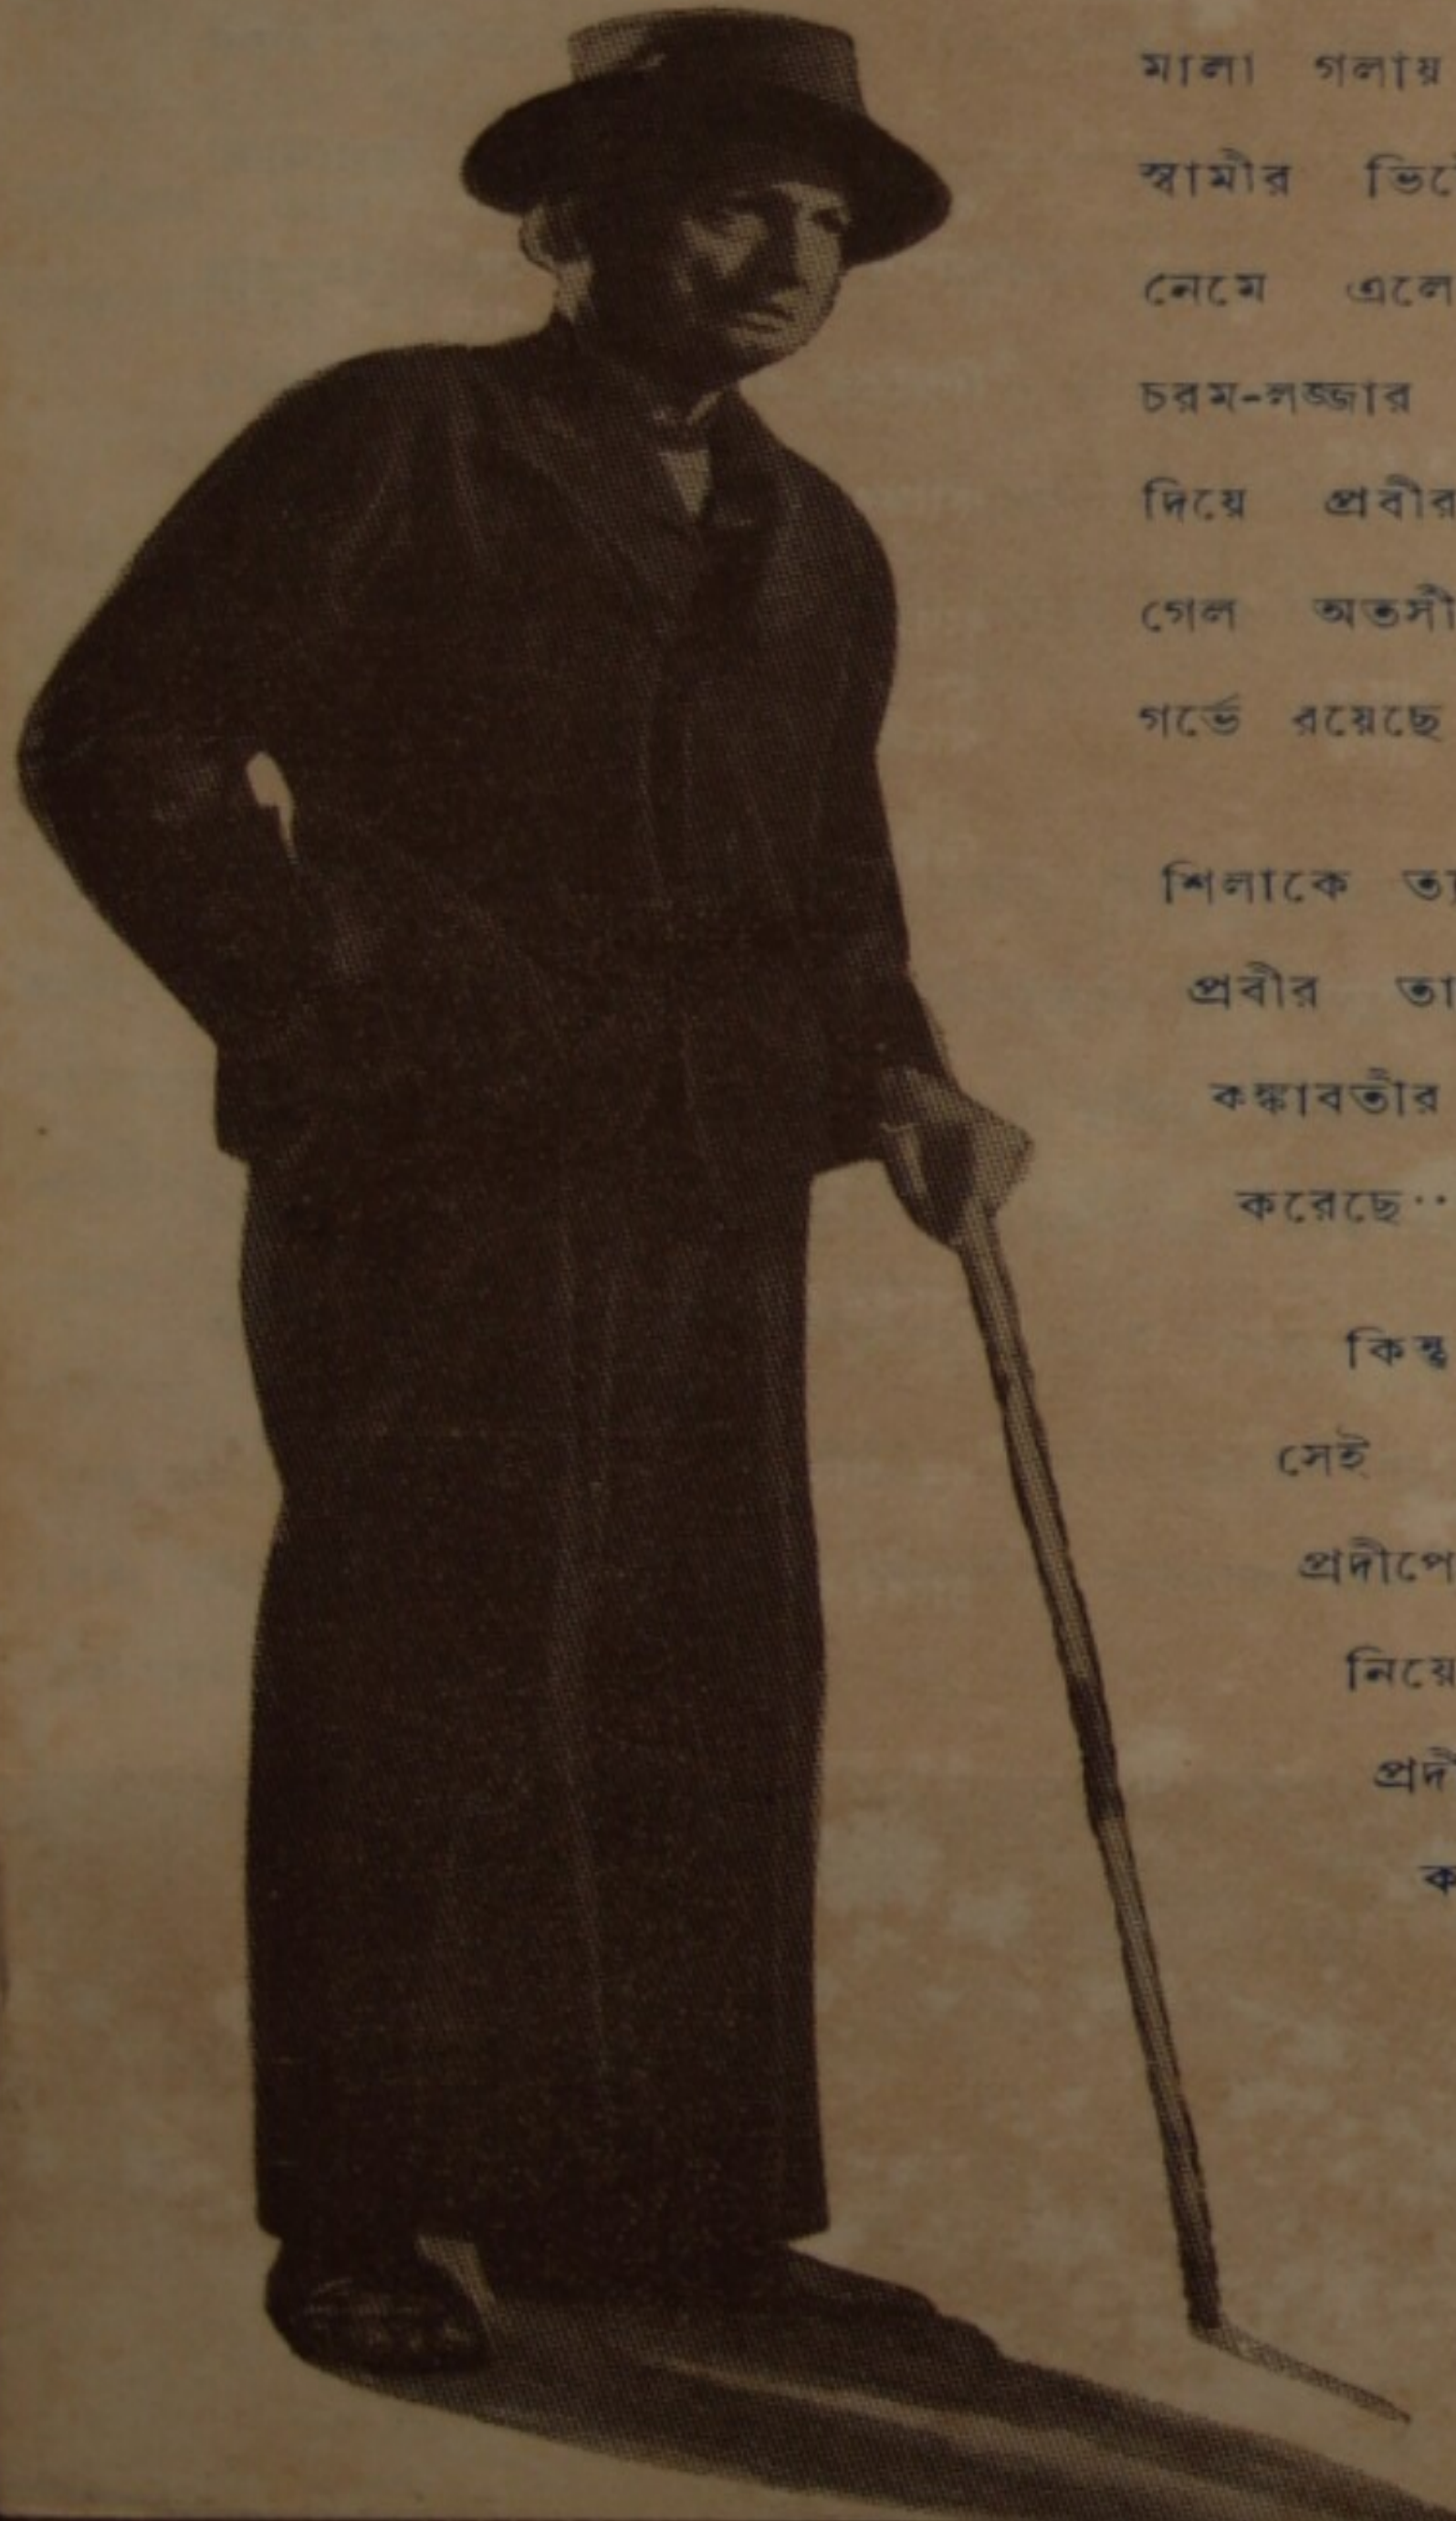 মালা গলায়
স্বামীর
নেমে
চরম-লজ্জার
দিয়ে প্রবীর
গেল অতসী
গর্ভে রয়েছে
শিলাকে
প্রবীর
কঙ্কাবতীর
করেছে··
কিন্তু
সেই
প্রদীপে
নিয়ে